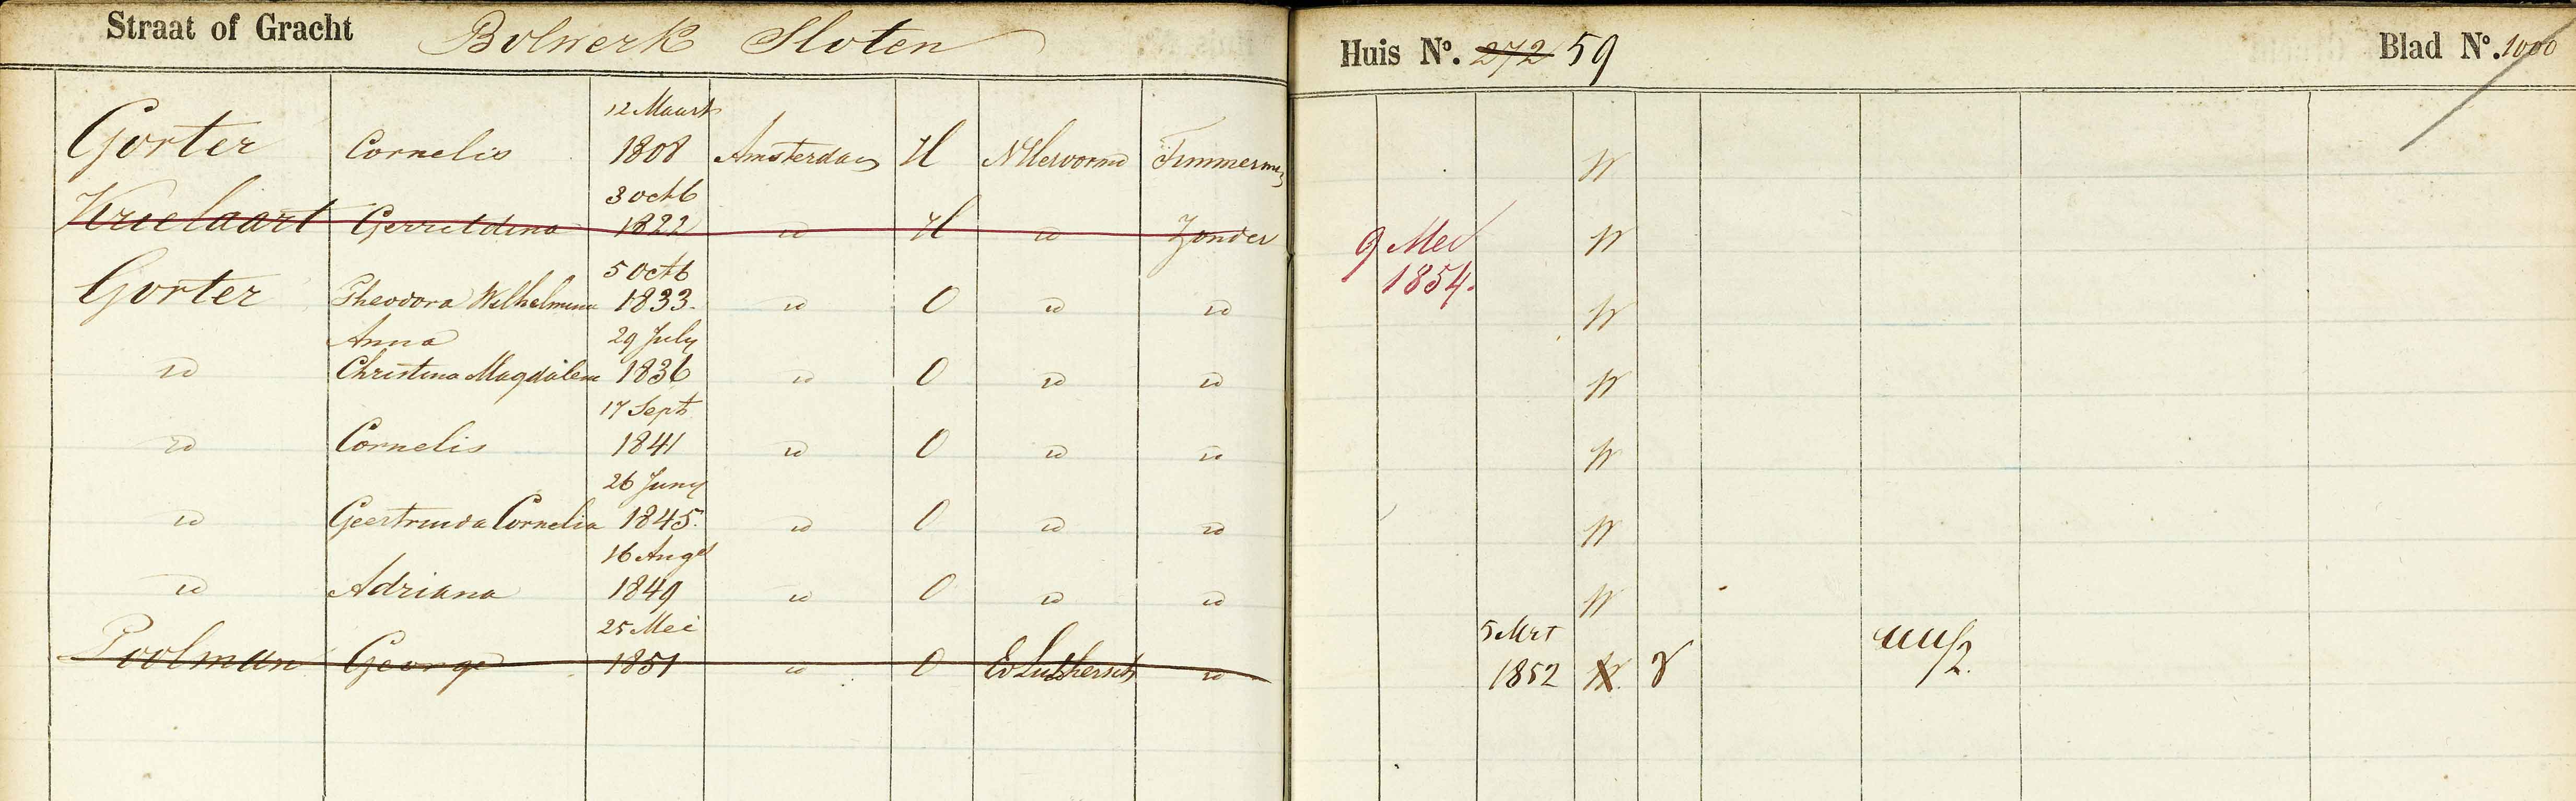 Straat of Gracht Bolwerk Sloten Huis No. 272 59 Blad No. 1000
12 Maart
Gorter Cornelis 1808 Amsterdam H NHervormd Timmerman W
3 Octb
Krielaart Gerritdina 1822 id H id Zonder 9 Mei 1854. W
5 Octb
Gorter Theodora Wilhelmina 1833. id O id id W
Anna 29 July
id Christina Magdalena 1836 id O id id W
17 Sept
id Cornelis 1841 id O id id W
26 Juny
id Geertruida Cornelia 1845. id O id id W
16 Augt
id Adriana 1849 id O id id W
25 Mei 5 Mrt
Poolman George 1851 id O Ev Luthersch id 1852 W